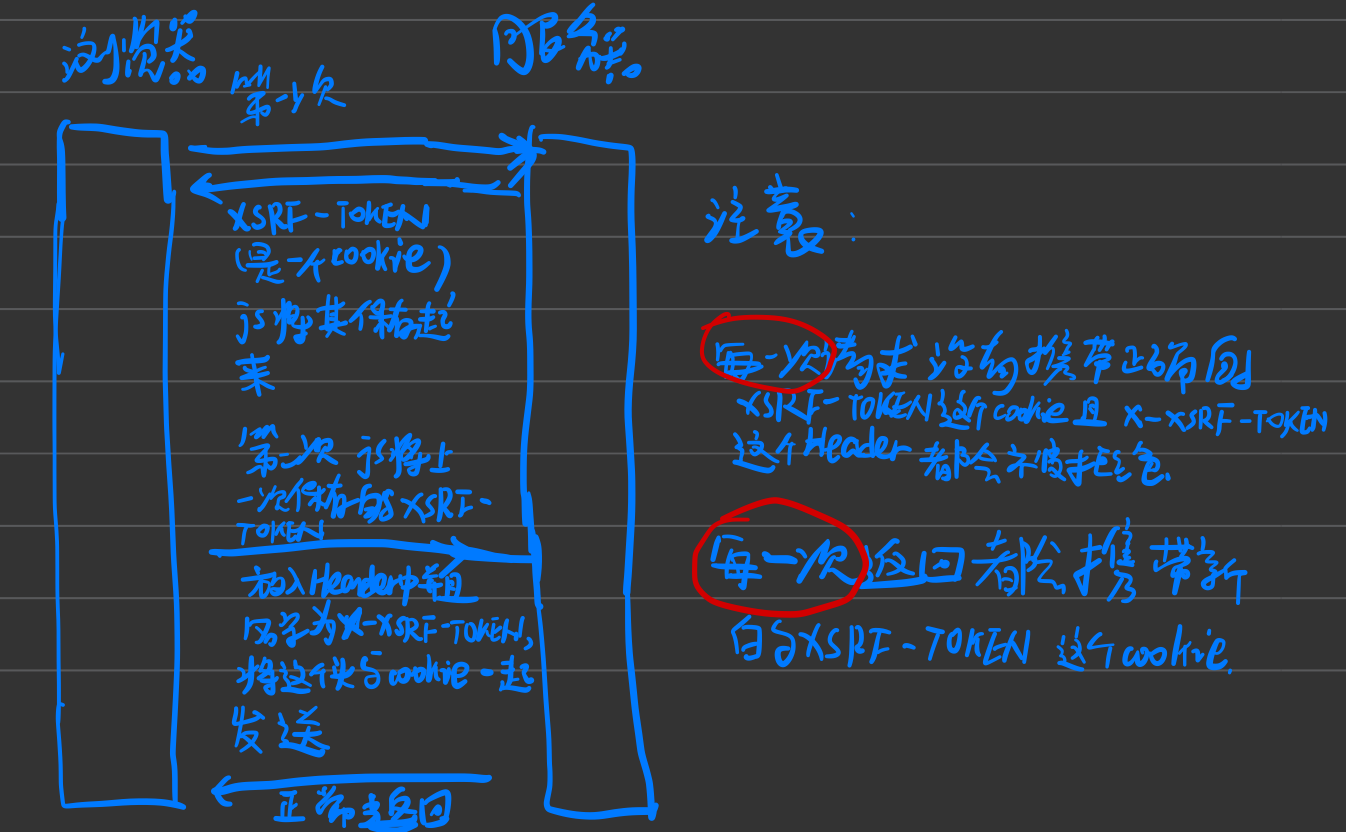 浏览器
服务器
第一次
XSRF-TOKEN
(是一个cookie)
js将其保存起
来
第二次 js将上
一次保存的XSRF-
TOKEN
放入Header中并且
名字为X-XSRF-TOKEN,
将这个头与cookie一起
发送
正常返回
注意:
每一次请求没有携带正确的
XSRF-TOKEN这个cookie且 X-XSRF-TOKEN
这个Header 都会被拒绝.
每一次返回都会携带新
的XSRF-TOKEN 这个cookie.